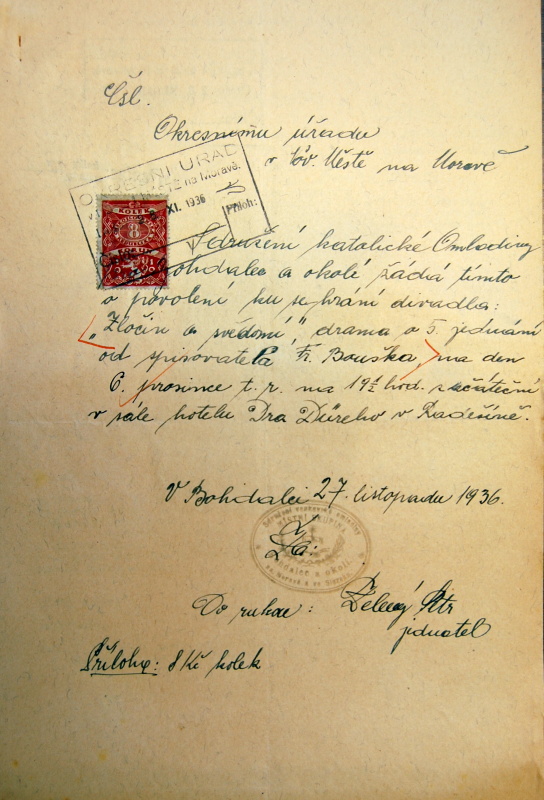 Čsl.
Okresnímu úřadu
v Nov. Městě na Moravě
OKRESNÍ ÚŘAD
MĚSTĚ na Moravě.
XI. 1936
Příloh:
KOLEK
8
KORUN
Sdružení katolické Omladiny
Bohdalec a okolí žádá tímto
o povolení ku sehrání divadla:
„Zločin a svědomí," drama o 5. jednání
od spisovatela Fr. Bouška, na den
6. prosince t. r. na 19½ hod. začáteční
v sále hotelu Dra Dürcho v Radešíně.
V Bohdalci 27. listopadu 1936.
Za:
Bohdalec a okolí.
Do rukou: Zelený Petr
jednatel
Příloha: 8 Kč kolek